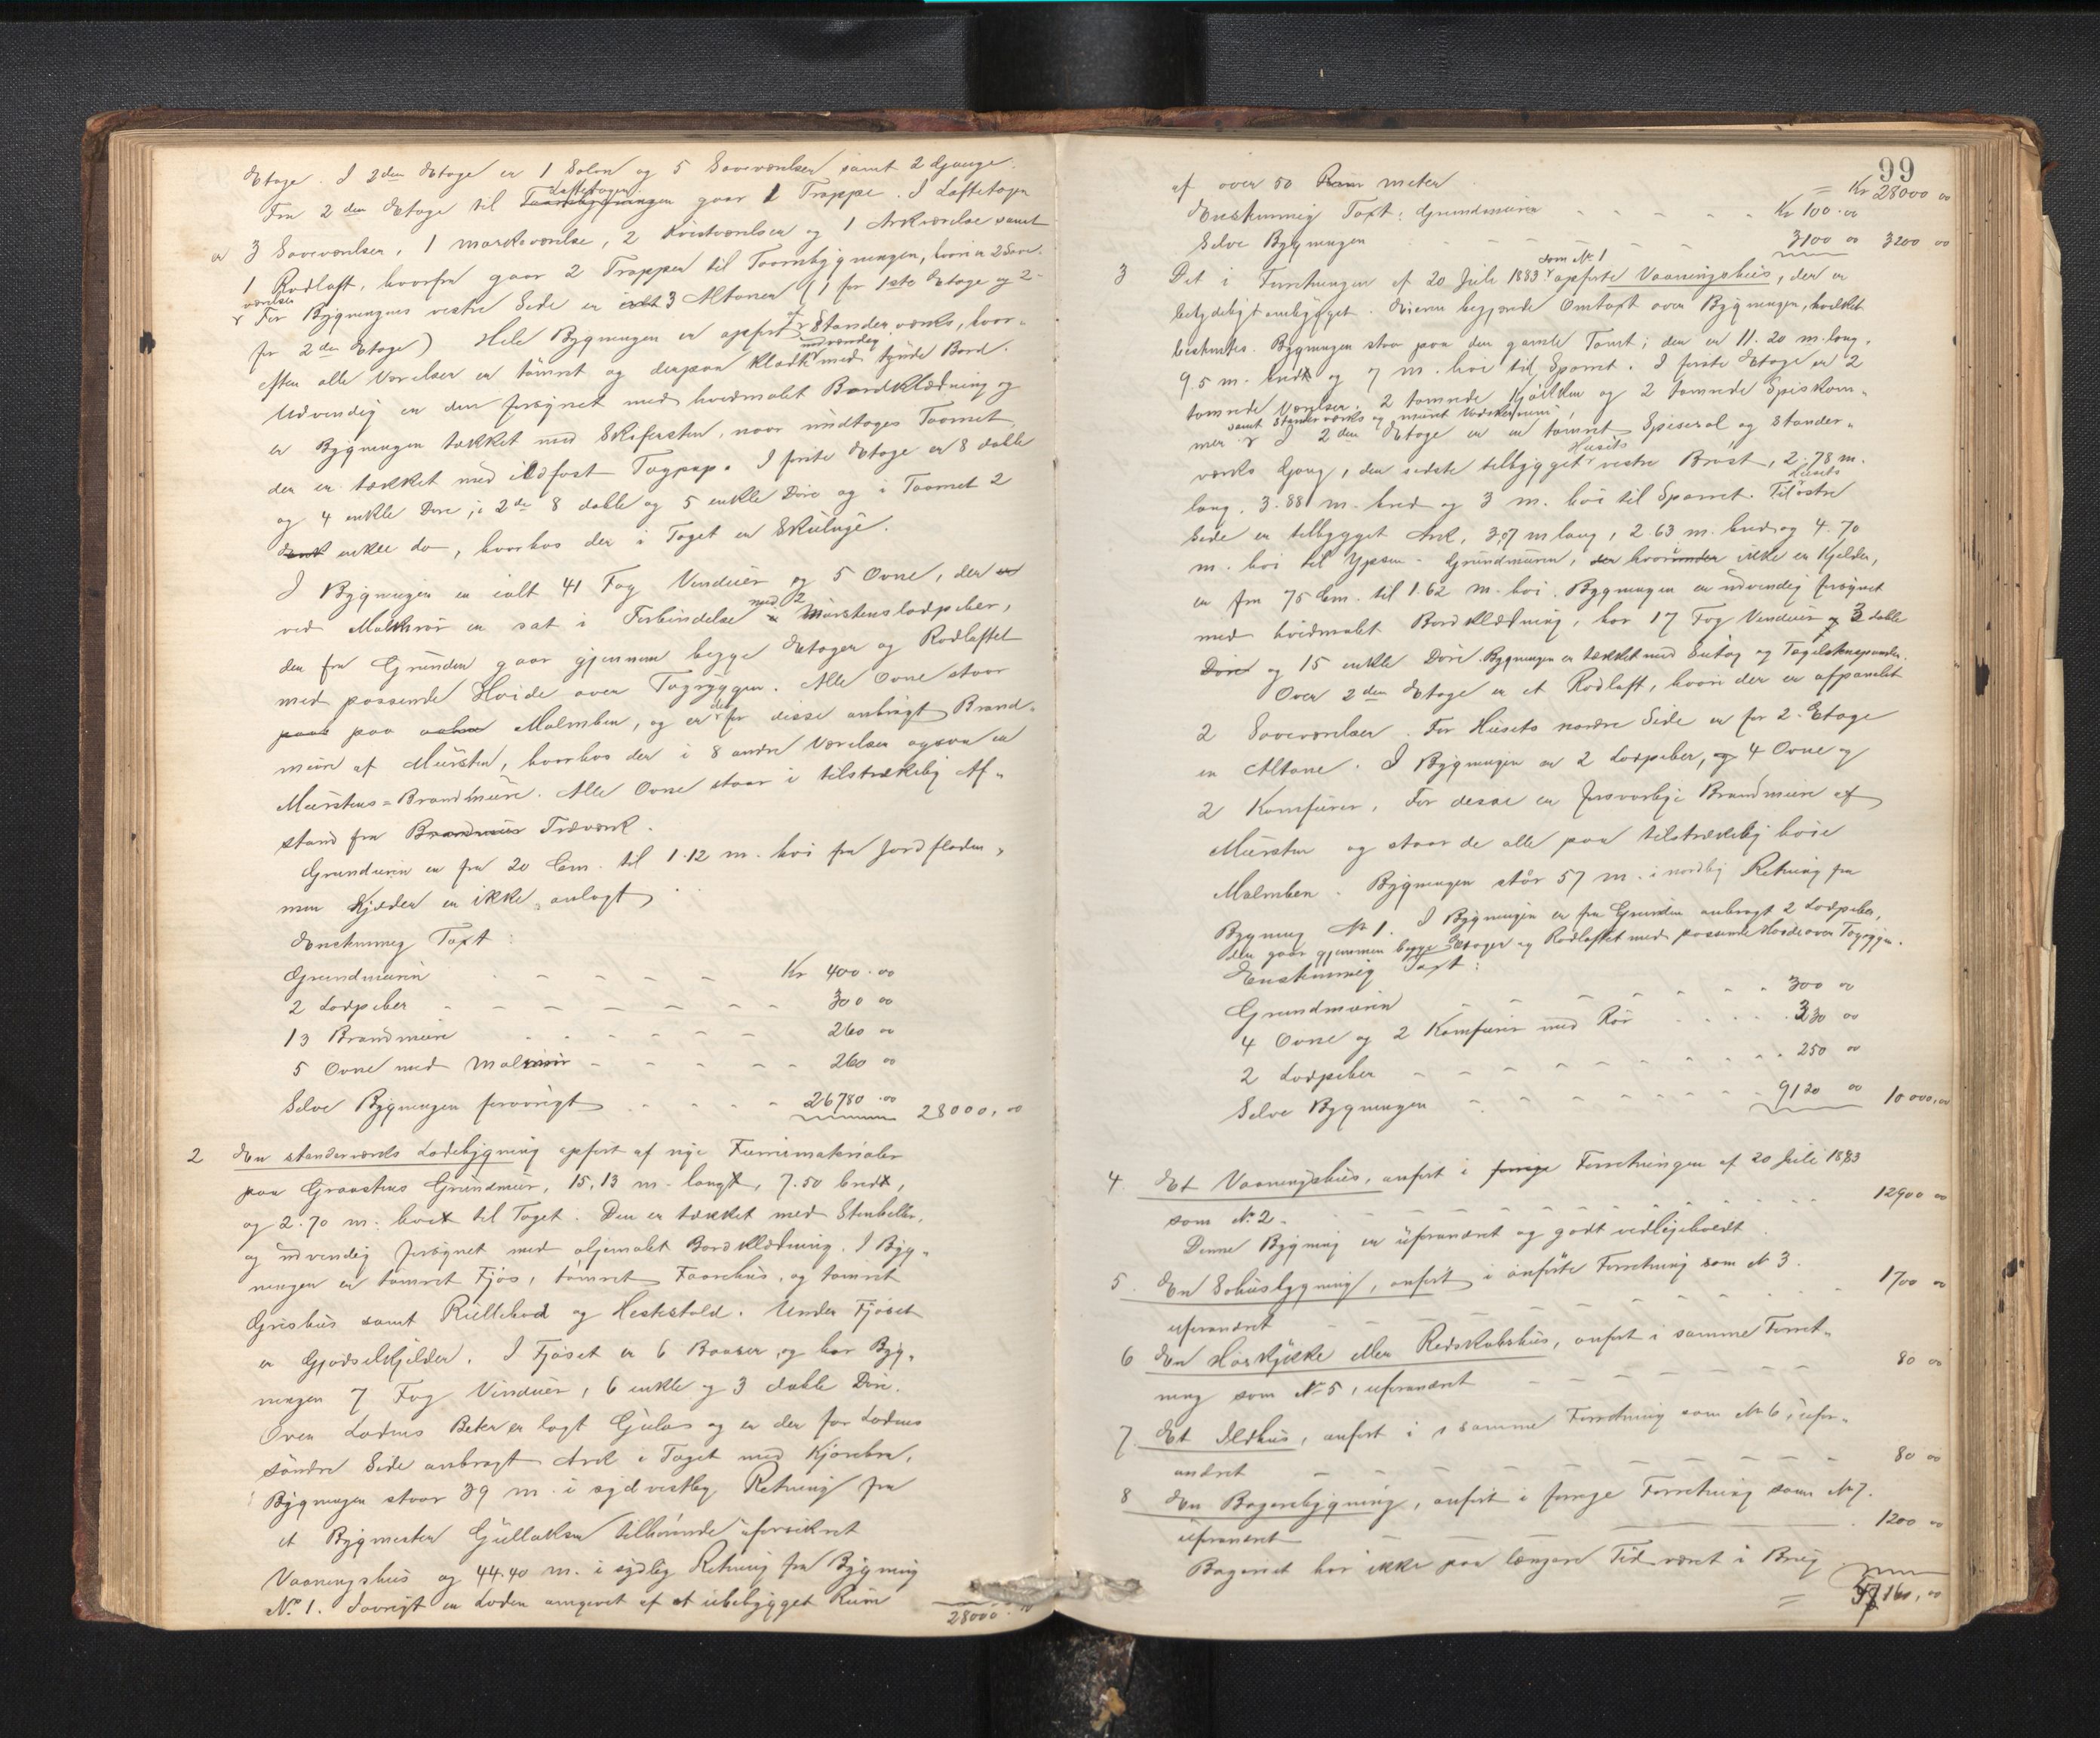 Etage. I 2den Etage er 1 Salon og 5 Soveværelser samt 2 Gange.
Fra 2den Etage til Loftetagen gaar 1 Trappe. I Loftetagen
er 3 Soveværelser, 1 Mørkeværelse, 2 Kvistværelser og 1 Arkværelse samt
1 Rodloft, hvorfra gaar 2 Trapper til Taarnbygningen, hvori er 2 Sove-
værelser
For Bygningens vestre Side er ialt 3 Altaner (1 for 1ste Etage og 2
for 2den Etage) Hele Bygningen er opført af Standerværks, hvor-
efter alle Værelser er tømret og derpaa klædt indvendig med tynde Bord.
Udvendig er den forsynet med hvidmalet Bordklædning og
er Bygningen tækket med Skifersten, naar undtages Taarnet,
der er tækket med ildfast Tagpap. I første Etage er 8 doble
og 4 enkle Døre, i 2de 8 doble og 5 enkle Døre og i Taarnet 2
enkle do, hvorhos der i Taget er Skuluge.
I Bygningen er ialt 41 Fag Vinduer og 5 Ovne, der
ved Malmrør er sat i Forbindelse med 2 Murstens lodpiber,
der fra Grunden gaar gjennem begge Etager og Rodloftet
med passende Høide over Tagryggen. Alle Ovne staar
paa Malmben, og er der for disse anbragt Brand-
mure af Mursten, hvorhos der i 8 andre Værelser ogsaa er
Murstens-Brandmure. Alle Ovne staar i tilstrækkelig Af-
stand fra Træværk.
Grundmuren er fra 20 Cm. til 1.12 m. høi fra Jordfladen,
men Kjælder er ikke anlagt.
Enstemmig Taxt:
Grundmuren Kr 400.00
2 Lodpiber 300 00
13 Brandmure 260 00
5 Ovne med Malmrør 260 00
Selve Bygningen forøvrigt 26780.00 28000,00
2 En standerværks Ladebygning opført af nye Furumaterialer
paa Graastens Grundmur, 15,13 m. lang, 7.50 bred,
og 2.70 m. høi til Taget. Den er tækket med Stenheller,
og udvendig forsynet med oljemalet Bordklædning. I Byg-
ningen er tømret Fjøs, tømret Faarehus, og tømret
Grishus samt Rullebod og Hestestald. Under Fjøset
er Gjødselkjelder. I Fjøset er 6 Baaser og har Byg-
ningen 7 Fag Vinduer, 6 enkle og 3 doble Døre.
Over Ladens Beter er lagt Gulv og er der for Ladens
søndre Side anbragt Ark i Taget med Kjørebro.
Bygningen staar 39 m. i sydvestlig Retning fra
et Bygmester Gullaksen tilhørende uforsikret
Vaaningshus og 44.40 m. i sydlig Retning fra Bygning
No 1. Iøvrigt er Laden omgivet af et ubebygget Rum
28000.00
99
af over 50 meter = Kr 28000 00
Enstemmig Taxt: Grundmuren Kr 100.00
Selve Bygningen 3100 00 3200 00
3 Det i Forretningen af 20 Juli 1883 som No 1 opførte Vaaningshus, der er
betydeligt ombygget. Eieren begjærede Omtaxt over Bygningen, hvilket
besluttes. Bygningen staar paa den gamle Tomt; den er 11.20 m. lang,
9.5 m. bred og 7 m. høi til Sparret. I første Etage er 2
tømrede Værelser, 2 tømrede Kjøkken og 2 tømrede Spiskam-
samt Standerværks og muret Vaskerum
mer. I 2den Etage er en tømret Spisesal og Stander-
værks Gang, den sidste tilbygget Husets vestre Brøst, 2.78 m.
lang, 3.88 m. bred og 3 m. høi til Sparret. Til Husets østre
Side er tilbygget Ark, 3,7 m lang, 2.63 m. bred og 4.70
m. høi til Ypsen. Grundmuren, hvorunder ikke er Kjelder,
er fra 75 Cm. til 1.62 m. høi. Bygningen er udvendig forsynet
med hvidmalet Bordklædning, har 17 Fag Vinduer 3 doble
og 15 enkle Døre. Bygningen er tækket med Sutag og Taglstenspander.
Over 2den Etage er et Rodloft, hvori der er afpanelet
2 Soveværelser. For Husets nordre Side er for 2. Etage
en Altane. I Bygningen er 2 Lodpiber, 4 Ovne og
2 Komfurer, For disse er forsvarlige Brandmure af
Mursten og staar de alle paa tilstrækkelig høie
Malmben. Bygningen står 57 m. i nordlig Retning fra
Bygning No 1. I Bygningen er fra Grunden anbragt 2 Lodpiber,
der gaar gjennem begge Etager og Rodloftet med passende Høide over Tagryggen.
Enstemmig Taxt:
Grundmuren 300 00
4 Ovne og 2 Komfurer med Rør 330 00
2 Lodpiber 250 00
Selve Bygningen 9120 00 10000,00
4. Et Vaaningshus, anført i Forretningen af 20 Juli 1883
som No 2. 12900 00
Denne Bygning er uforandret og godt vedligeholdt.
5. En Søhusbygning, anført i anførte Forretning som No 3. 1700 00
uforandret
6 En Hørkjøkke eller Redskabshus, anført i samme Forret-
ning som No 5, uforandret 80 00
7. Et Ildhus, anført i samme Forretning som No 6, ufor-
andret 80 00
8 En Bageribygning, anført i forrige Forretning som No 7.
uforandret 1200 00
Bageriet har ikke paa længere Tid været i Brug.
= 57160,00